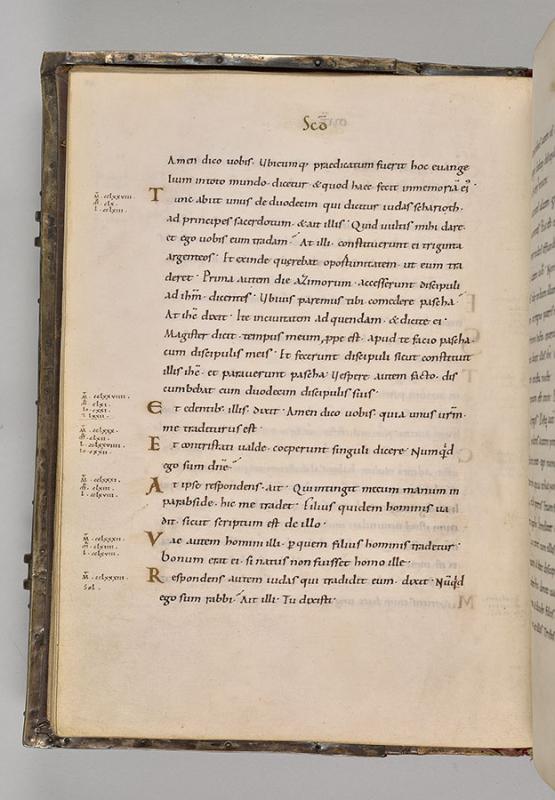 Scd̄
Amen dico vobis. Ubicumq; praedicatum fuerit hoc evange
lium in toto mundo. dicetur & quod haec fecit in memoriā ei'.
Tunc abiit unus de duodecim qui dicitur iudas scharioth.
ad principes sacerdotum. & ait illis. Quid vultis mihi dare.
et ego vobis eum tradam? At illi constituerunt ei triginta
argenteos. Et exinde querebat oportunitatem. ut eum tra
deret. Prima autem die azimorum. accesserunt discipuli
ad ihm̄. dicentes. Ubi vis paremus tibi comedere pascha?
At ihc̄ dixit. Ite in civitatem ad quendam. & dicite ei.
Magister dicit. tempus meum ꝓpe est. apud te facio pascha
cum discipulis meis. Et fecerunt discipuli sicut constituit
illis ihc̄. et paraverunt pascha. Vespere autem facto. dis
cumbebat cum duodecim discipulis suis.
Et edentib; illis. dixit. Amen dico vobis. quia unus vr̄m.
me traditurus est.
Et contristati valde. coeperunt singuli dicere. Numq̇d
ego sum dn̄e?
At ipse respondens. ait. Qui intingit mecum manum in
parabside. hic me tradet. Filius quidem hominis va
dit. sicut scriptum est de illo.
Vae autem homini illi. ꝑ quem filius hominis tradetur.
bonum erat ei. si natus non fuisset homo ille.
Respondens autem iudas qui tradidit eum. dixit. Nūq̇d
ego sum rabbi? Ait illi. Tu dixisti.